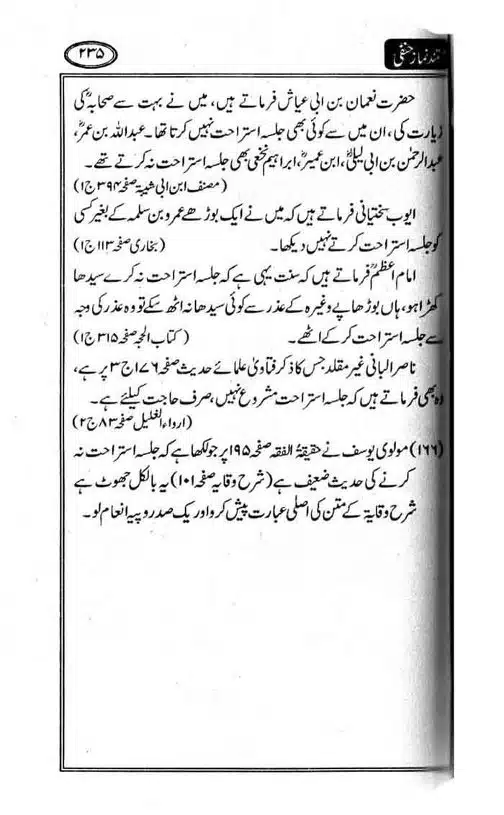 نماز حنفی
۲۳۵
حضرت نعمان بن ابی عیاش فرماتے ہیں، میں نے بہت سے صحابہؓ کی
زیارت کی، ان میں سے کوئی بھی جلسہ استراحت نہیں کرتا تھا۔ عبداللہ بن عمرؓ،
عبدالرحمٰن بن ابی لیلیٰؒ، ابن عمیرؒ، ابراہیم نخعی بھی جلسہ استراحت نہ کرتے تھے۔
(مصنف ابن ابی شیبۃ صفحہ ۳۹۴ ج۱)
ایوب سختیانی فرماتے ہیں کہ میں نے ایک بوڑھے عمرو بن سلمہ کے بغیر کسی
کو جلسہ استراحت کرتے نہیں دیکھا۔ (بخاری صفحہ ۱۱۳ ج۱)
امام اعظمؒ فرماتے ہیں کہ سنت یہی ہے کہ جلسہ استراحت نہ کرے سیدھا
کھڑا ہو، ہاں بوڑھاپے وغیرہ کے عذر سے کوئی سیدھا نہ اٹھ سکے تو وہ عذر کی وجہ
سے جلسہ استراحت کر کے اٹھے۔ (کتاب الحجہ صفحہ ۳۱۵ ج۱)
ناصر البانی غیر مقلد جس کا ذکر فتاویٰ علمائے حدیث صفحہ ۱۷۶ ج۳ پر ہے،
وہ بھی فرماتے ہیں کہ جلسہ استراحت مشروع نہیں، صرف حاجت کیلئے ہے۔
(ارواء الغلیل صفحہ ۸۳ ج۲)
(۱۶۶) مولوی یوسف نے حقیقۃ الفقہ صفحہ ۱۹۵ پر جو لکھا ہے کہ جلسہ استراحت نہ
کرنے کی حدیث ضعیف ہے (شرح وقایہ صفحہ ۱۰۱) یہ بالکل جھوٹ ہے
شرح وقایۃ کے متن کی اصلی عبارت پیش کرو اور یک صد روپیہ انعام لو۔